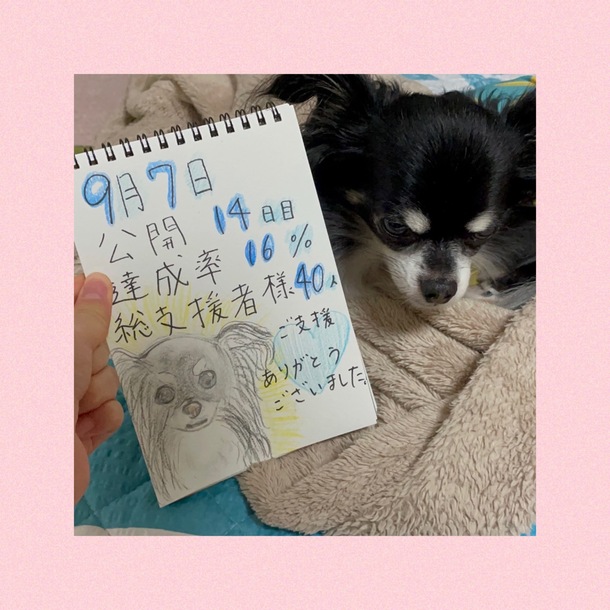 9月7日
公開 14日目
達成率 16%
総支援者様40人
ご支援
ありがとう
ございました